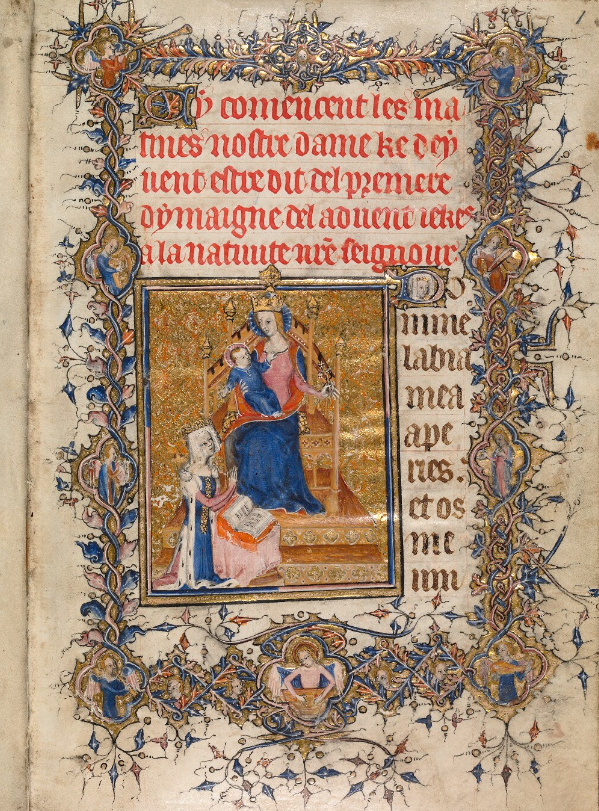 1
Cy comencent les ma
tines nostre dame ke dey
uent estre dit del premere
dymaigne del aduent iekes
a la natiuite nr̄e seignour
Do
mine
labia
mea
ape
ries.
et os
me
um